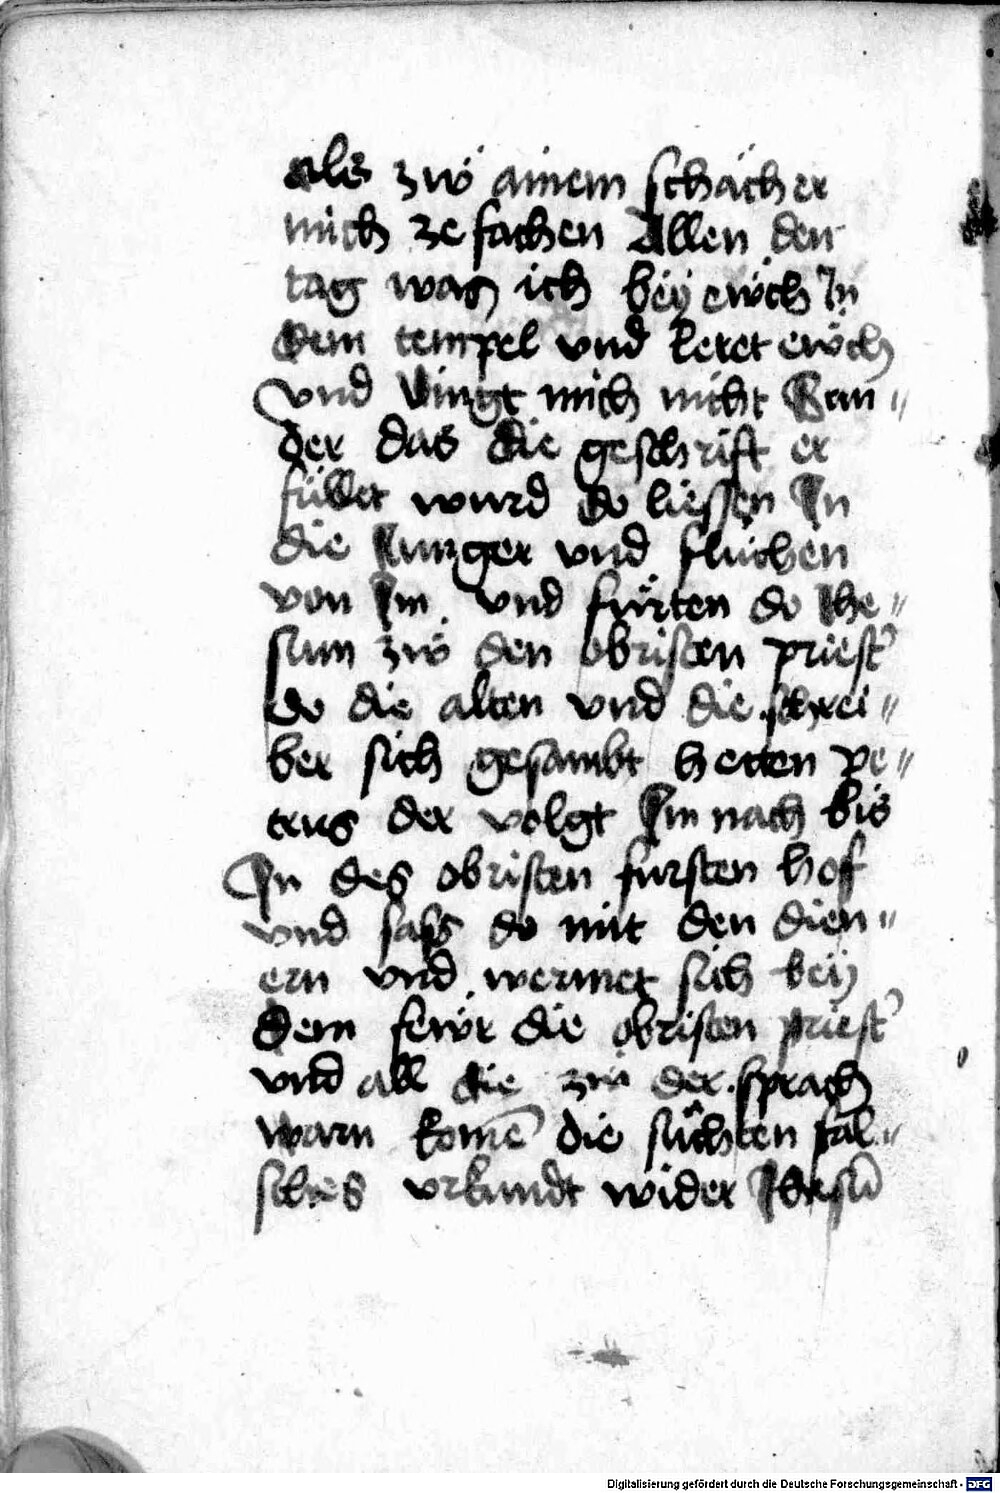 als zwͦ ainem schächer
mich ze fachen Allen den
tag waß ich beÿ ewͦch In
dem tempel vnd leret ewͦch
vnd vingt mich nicht Sun〃
der das die geschrift er
füllet wurd do liessen In
die Iunger vnd fluchen
von Im vnd fürten do Ihe〃
sum zwͦ den obristen priestˀ
do die alten vnd die schrei〃
ber sich gesambt hetten pe〃
trus der volgt Im nach bis
In des obristen fursten hof
vnd sasß do mit den dien〃
ern vnd wermet sich beÿ
dem fewͦr die obristen priestˀ
vnd all die zu der sprach
warn komē die suchten fal〃
sches vrkundt wider Ihesū
Digitalisierung gefördert durch die Deutsche Forschungsgemeinschaft - DFG